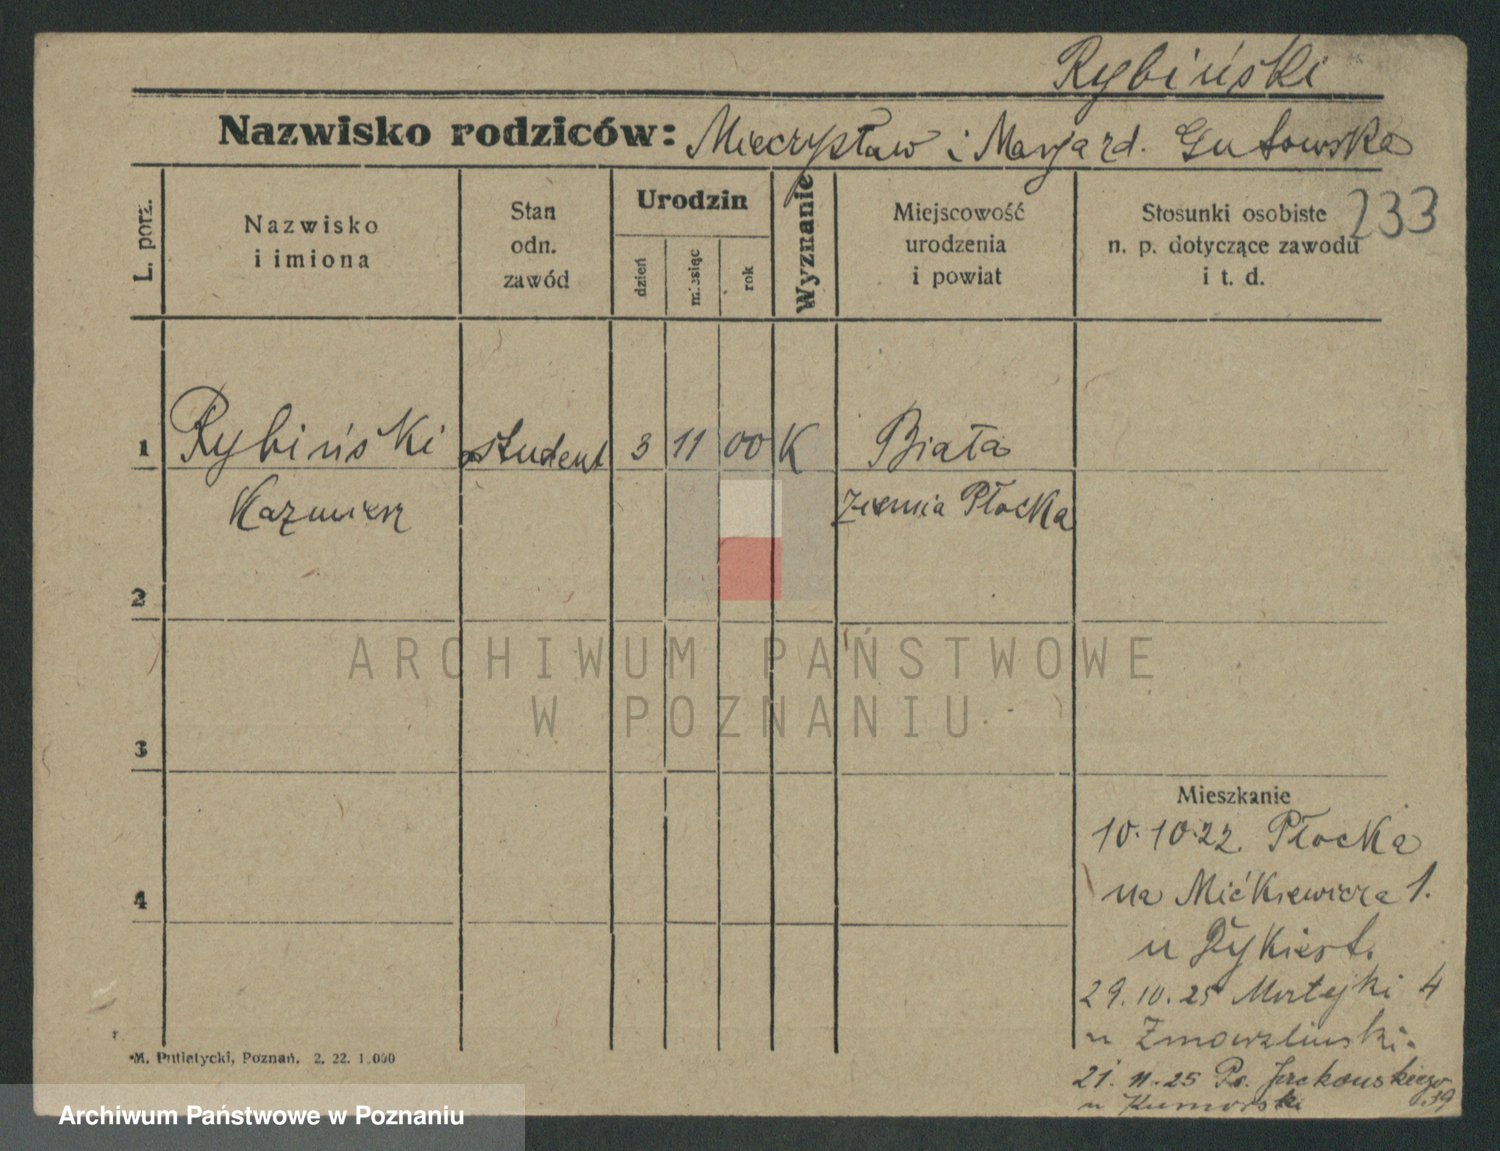 Rybiński
Nazwisko rodziców: Mieczysław i Marja zd. Gutowska
233
L. porz.
Nazwisko
i imiona
Stan
odn.
zawód
Urodzin
dzień
miesiąc
rok
Wyznanie
Miejscowość
urodzenia
i powiat
Stosunki osobiste
n. p. dotyczące zawodu
i t. d.
1 Rybiński student 3 11 00 K Biała
Kazimierz Ziemia Płocka
2
ARCHIWUM PAŃSTWOWE
W POZNANIU
3
Mieszkanie
10.10.22. Płocka
na Mićkiewicza 1.
4
u
29.10.25 4
u
21. 11.25 39
u Kumorski
M. Putiatycki, Poznań. 2. 22. 1.000
Archiwum Państwowe w Poznaniu